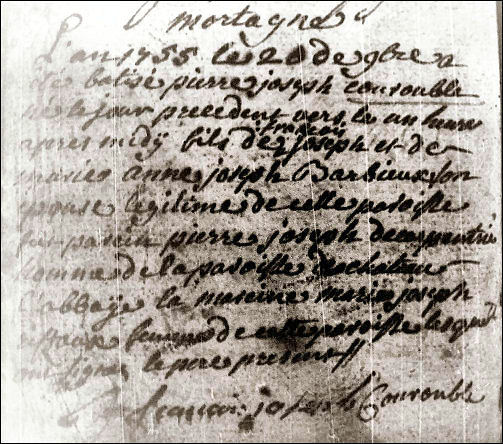 mortagne
L'an 1755 le 20 de 9bre a
été batisé pierre joseph couroublé
né le jour precedent vers les an heures
apres midÿ fils de joseph et de
françois
marie anne joseph Barbieux son
epouse legitime de cette paroisse
pierre joseph
homme de la paroisse de chateau
l'abbaÿe la mareine marie joseph
femme de cette paroisse lesquels
ont signés le pere present
françois joseph Couroublé